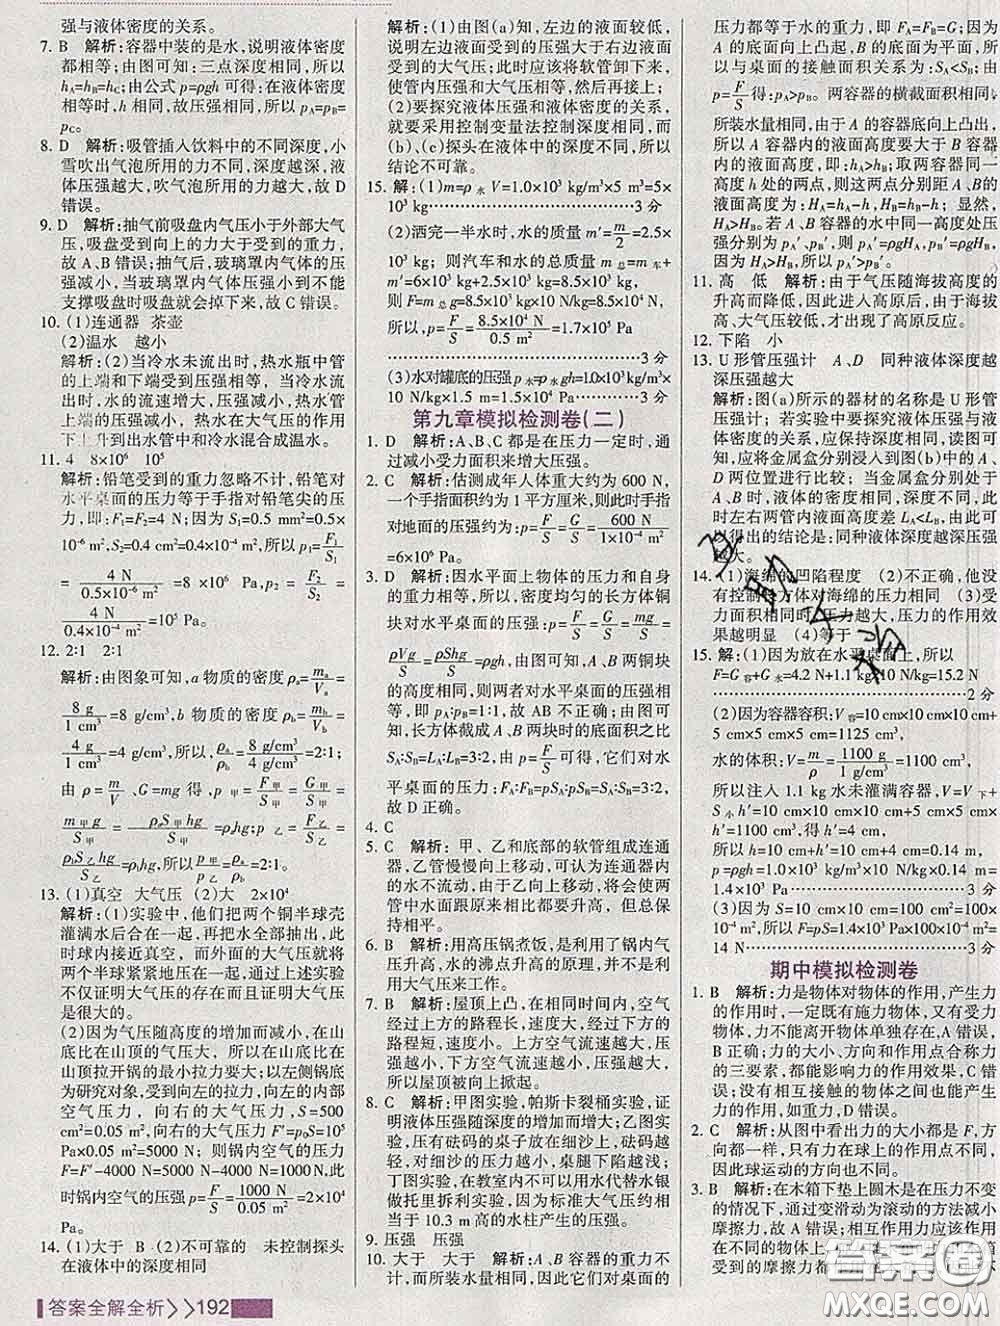 强与液体密度的关系。
7. B 解析:容器中装的是水,说明液体密度
都相等;由图可知:三点深度相同,所以
hA=hB=hC;由公式 p=ρgh 可得:在液体密度
相等时,h 相同,故压强相等,所以 pA=pB=
pC。
8. D 解析:吸管插入饮料中的不同深度,小
雪吹出气泡所用的力不同,深度越深,液
体压强越大,吹气泡所用的力越大,故 D
错误。
9. D 解析:抽气前吸盘内气压小于外部大气
压,吸盘受到向上的力大于受到的重力,
故 A、B 错误;抽气后,玻璃罩内气体的压
强减小,当玻璃罩内气体压强小到不能
支撑吸盘时吸盘就会掉下来,故 C 错误。
10. (1)连通器 茶壶
(2)温水 越小
解析:(2)当冷水未流出时,热水瓶中管
的上端和下端受到压强相等,当冷水流出
时,水的流速增大,压强减小,热水管
上端的压强小,热水在大气压的作用
下上升到出水管中和冷水混合成温水。
11. 4 8×10⁶ 10⁵
解析:铅笔受到的重力忽略不计,铅笔对
水平桌面的压力等于手指对铅笔尖的压
力,即:F₁=F₂=4 N;因为 S₁=0.5 mm²=0.5×
10⁻⁶ m²,S₂=0.4 cm²=0.4×10⁻⁴ m²,所以 p₁=F₁/S₁
=4 N/(0.5×10⁻⁶ m²)=8×10⁶ Pa,p₂=F₂/S₂=
4 N/(0.4×10⁻⁴ m²)=10⁵ Pa。
12. 2:1 2:1
解析:由图象可知,a 物质的密度 ρa=ma/Va=
8 g/1 cm³=8 g/cm³,b 物质的密度 ρb=mb/Vb=
4 g/1 cm³=4 g/cm³,所以,ρa/ρb=(8 g/cm³)/(4 g/cm³)=2:1;
由 ρ=m/V、G=mg 得,p甲=F甲/S甲=G甲/S甲=
m甲g/S甲=ρaS甲hg/S甲=ρahg;p乙=F乙/S乙
=ρbS乙hg/S乙=ρbhg,所以p甲/p乙=ρa/ρb=2:1。
13. (1)真空 大气压 (2)大 2×10⁴
解析:(1)实验中,他们把两个铜半球壳
灌满水后合在一起,再把水全部抽出,此
时球内接近真空,而外面的大气压就将
两个半球紧紧地压在一起,通过上述实验
不仅证明大气压强的存在且证明大气压强
是很大的。
(2)因为气压随高度的增加而减小,在山
底比在山顶的气压大,所以在山底比在山
顶拉开锅的最小拉力要大;以左侧锅底
为研究对象,受到向左的拉力,向左的内部
空气压力,向右的大气压力,S=500
cm²=0.05 m²,向右的大气压力 F′=p₀S=10⁵
Pa×0.05 m²=5000 N;则锅内空气的压力
F=F′-4000 N=5000 N-4000 N=1000 N,
此时锅内空气的压强 p=F/S=1000 N/0.05 m²=2×10⁴
Pa。
14. (1)大于 B (2)不可靠的 未控制探头
在液体中的深度相同
解析:(1)由图(a)知,左边的液面较低,
说明左边液面受到的压强大于右边液面
受到的大气压;此时应该将软管卸下来,
使管内压强和大气压相等,然后再接上;
(2)要探究液体压强和液体密度的关系,
就要采用控制变量法控制深度相同,而
(b)、(c)探头在液体中的深度不同,所以
结论不可靠。
15. 解:(1)m=ρ水V=1.0×10³ kg/m³×5 m³=5×
10³ kg 3 分
(2)洒完一半水时,水的质量 m′=m/2=2.5×
10³ kg;则汽车和水的总质量 m总=m车+
m′=6×10³ kg+2.5×10³ kg=8.5×10³ kg
则 F=G=8.5×10³ kg×10 N/kg=8.5×10⁴ N
所以,p=F/S=8.5×10⁴ N/0.5 m²=1.7×10⁵ Pa
3 分
(3)水对罐底的压强 p水=ρ水gh=1.0×10³ kg/m³
×10 N/kg×1 m=1×10⁴ Pa 3 分
第九章模拟检测卷(二)
1. D 解析:A、B、C 都是在压力一定时,通
过减小受力面积来增大压强。
2. C 解析:估测成年人体重大约为 600 N,
一个手指面积约为 1 平方厘米,则此时手指
对地面的压强约为:p=F/S=G/S=600 N/(1×10⁻⁴ m²)
=6×10⁶ Pa。
3. D 解析:因水平面上物体的压力和自身
的重力相等,所以,密度均匀的长方体铜
块对水平桌面的压强:p=F/S=G/S=mg/S=
ρVg/S=ρShg/S=ρgh,由图可知,A、B 两铜块
的高度相同,则两者对水平桌面的压强相
等,即 pA:pB=1:1,故 AB 不正确;由图可知,
长方体截成 A、B 两块时的底面积之比
SA:SB=LA:LB=3:2,由 p=F/S可得,它们对水
平桌面的压力:FA:FB=pSA:pSB=SA:SB=3:2,
故 D 正确。
4. C
5. C 解析:甲、乙和底部的软管组成连通
器,乙管慢慢向上移动,可认为连通器内
的水不流动,故由于乙向上移动,将会使两
管中水面跟原来相比都要升高,但总保
持相平。
6. B 解析:用高压锅煮饭,是利用了锅内气
压升高、水的沸点升高的原理,并不是利
用大气压来工作。
7. B 解析:屋顶上凸,在相同时间内,空气
经过上方的路程长,速度大,经过下方的
路程短,速度小。上方空气流速越大,压
强越小,下方空气流速越小,压强越大,
所以屋顶被向上掀起。
8. C 解析:甲图实验,帕斯卡裂桶实验,证
明液体压强随深度的增加而增大;乙图实
验,压有砝码的桌子放在细沙上,砝码越
轻,对细沙的压力越小,桌腿下陷越浅;
丁图,在教室内不可以用水代替水银
做托里拆利实验,因为标准大气压约相
当于 10.3 m 高的水柱产生的压强。
9. 压强 压强
10. 大于 大于 解析:A、B 容器的重力不
计,而所装水量相同,因此它们对桌面的
压力都等于水的重力,即:FA=FB=G;因为
A 的底面向上凸起,B 的底面为平面,所
以与桌面的接触面积关系为:SA<SB;由
p=F/S得:pA>pB。两容器的横截面积相同,
所装水量相同,由于 A 的容器底向上凸出,
所以 A 容器内的液面高度要大于 B 容器
内的液面高度,即:hA>hB;取两容器同一
高度 h 处的两点,则这两点分别距 A、B的
液面高度为:HA=hA-h,HB=hB-h;显然,
HA>HB。若 A、B 容器的水中同一高度处压
强分别为 pA′、pB′,则 pA′=ρgHA,pB′=ρgHB;
由于 HA>HB,所以:pA′>pB′。
11. 高 低 解析:由于气压随海拔高度的
升高而降低,因此进入高原后,由于海拔
高、大气压较低,才出现了高原反应。
12. 下陷 小
13. U 形管压强计 A、D 同种液体深度越
深压强越大
解析:图(a)所示的器材的名称是 U 形管
压强计;若实验中要探究液体压强与液
体密度的关系,应保持深度相同,读图可
知,应将金属盒分别浸入到图(b)中的 A、
D 两位置进行比较;当金属盒分别处于
A、B 时,液体的密度相同,深度不同,此
时左右两管内液面高度差 LA<LB,由此可
以得出的结论是:同种液体深度越深压强
越大。
14. (1)海绵的凹陷程度 (2)不正确,他没
有控制长方体对海绵的压力相同 (3)受
力面积相同时,压力越大,压力的作用效
果越明显 (4)等于
15. 解:(1)因为放在水平桌面上,所以
F=G容+G水=4.2 N+1.1 kg×10 N/kg=15.2 N
2 分
(2)因为容器容积:V容=10 cm×10 cm×10 cm+
5 cm×5 cm×5 cm=1125 cm³,
水的体积:V=m/ρ=1100 g/(1 g/cm³)=1100 cm³
所以注入 1.1 kg 水未灌满容器,V=V下+
S小h′=10 cm×10 cm×10 cm+5 cm×5 cm×
h′=1100 cm³,得 h′=4 cm,
所以 h=10 cm+4 cm=14 cm=0.14 m,
p=ρgh=1.0×10³ kg/m³×10 N/kg×0.14 m=
1.4×10³ Pa 3 分
(3)因为 S=10 cm×10 cm=100 cm²=100×
10⁻⁴ m²,所以 F=pS=1.4×10³ Pa×100×10⁻⁴ m²=
14 N 3 分
期中模拟检测卷
1. B 解析:力是物体对物体的作用,产生力
的作用时,一定既有施力物体,又有受力
物体,力不能离开物体单独存在,A 错误,
B 正确;力的大小、方向和作用点合称力
的三要素,都能影响力的作用效果,C 错
误;没有相互接触的物体之间也能产生
力的作用,如重力,D 错误。
2. C 解析:从图中看出力的大小都是 F,方
向都一样,力的作用点的位置不同,
因此球运动的方向也不同。
3. B 解析:在木箱下垫上圆木是在压力不变
的情况下,通过变滑动为滚动的方法减小
摩擦力,故 A 错误;相互作用力应该作用
在不同的
答案全解全析>>192
答案圈
MXQE.COM